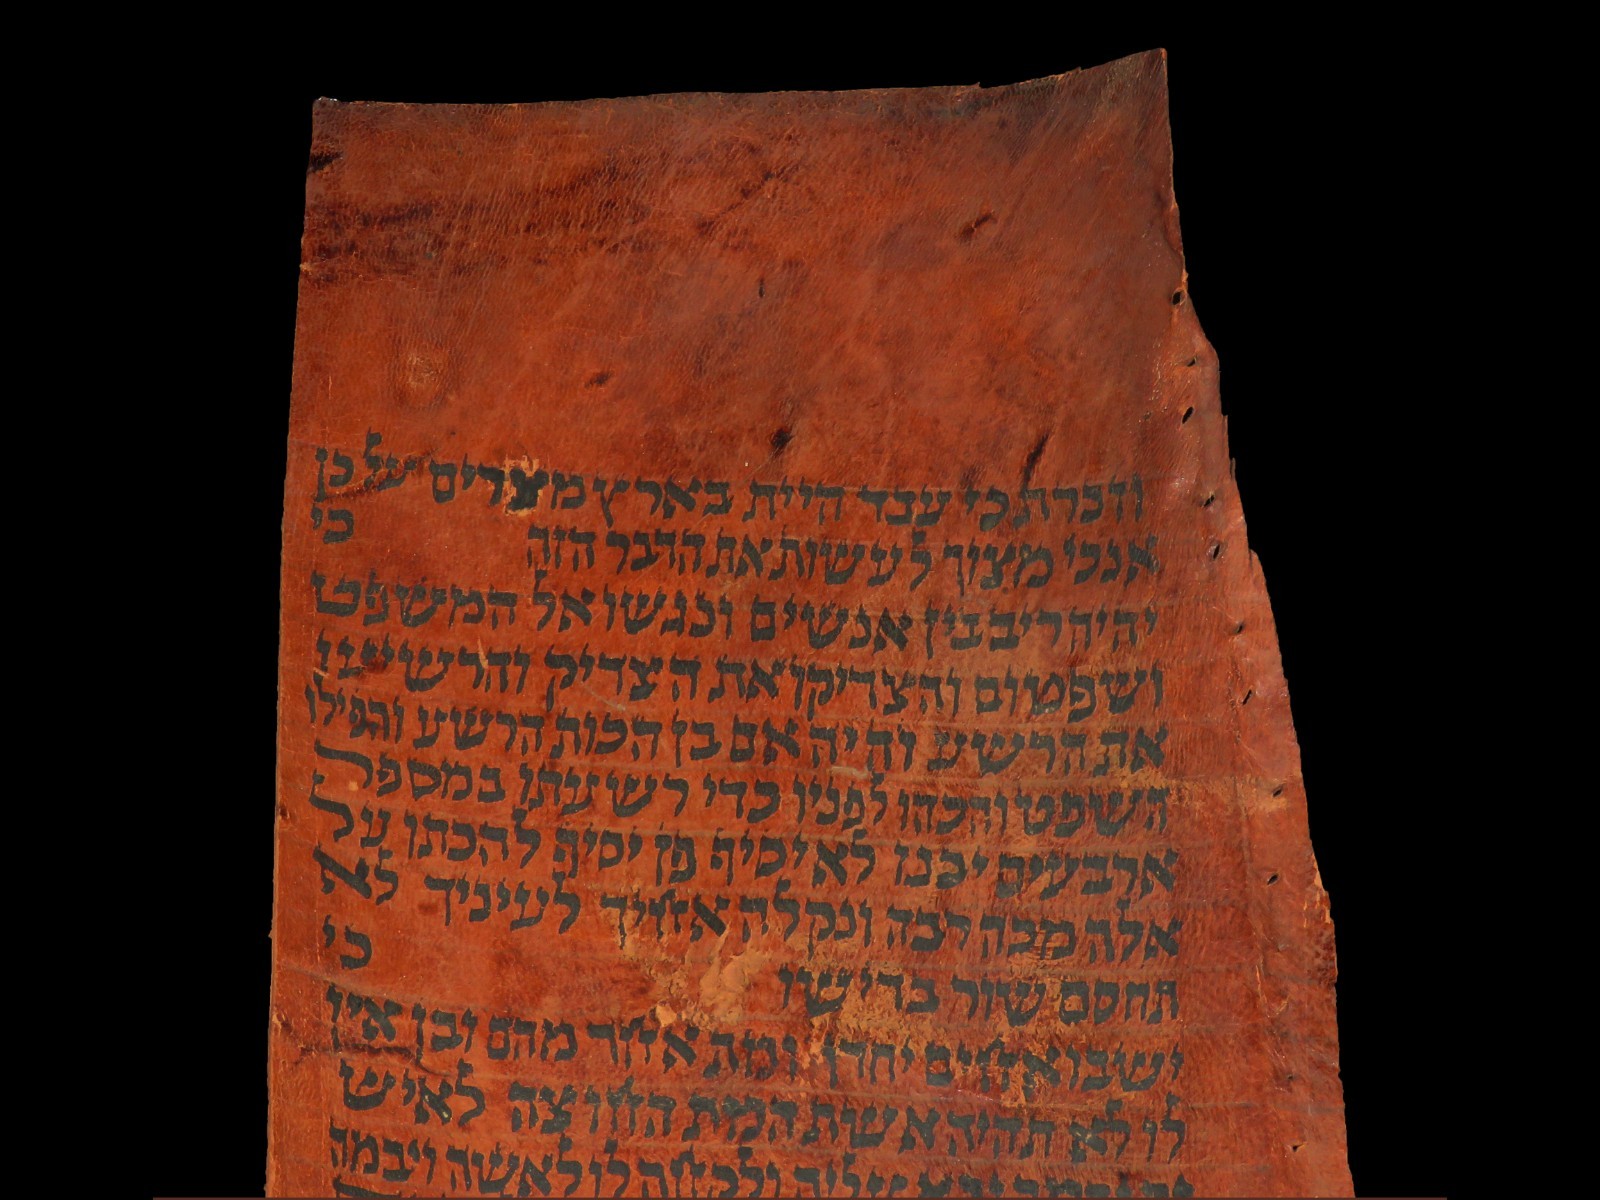 וזכרת כי עבד היית בארץ מצרים על כן
אנכי מצוך לעשות את הדבר הזה כי
יהיה ריב בין אנשים ונגשו אל המשפט
ושפטום והצדיקו את הצדיק והרשיעו
את הרשע והיה אם בן הכות הרשע והפילו
השפט והכהו לפניו כדי רשעתו במספר
ארבעים יכנו לא יסיף פן יסיף להכתו על
אלה מכה רבה ונקלה אחיך לעיניך לא
תחסם שור בדישו כי
ישבו אחים יחדו ומת אחד מהם ובן אין
לו לא תהיה אשת המת החוצה לאיש
זר יבמה יבא עליה ולקחה לו לאשה ויבמה